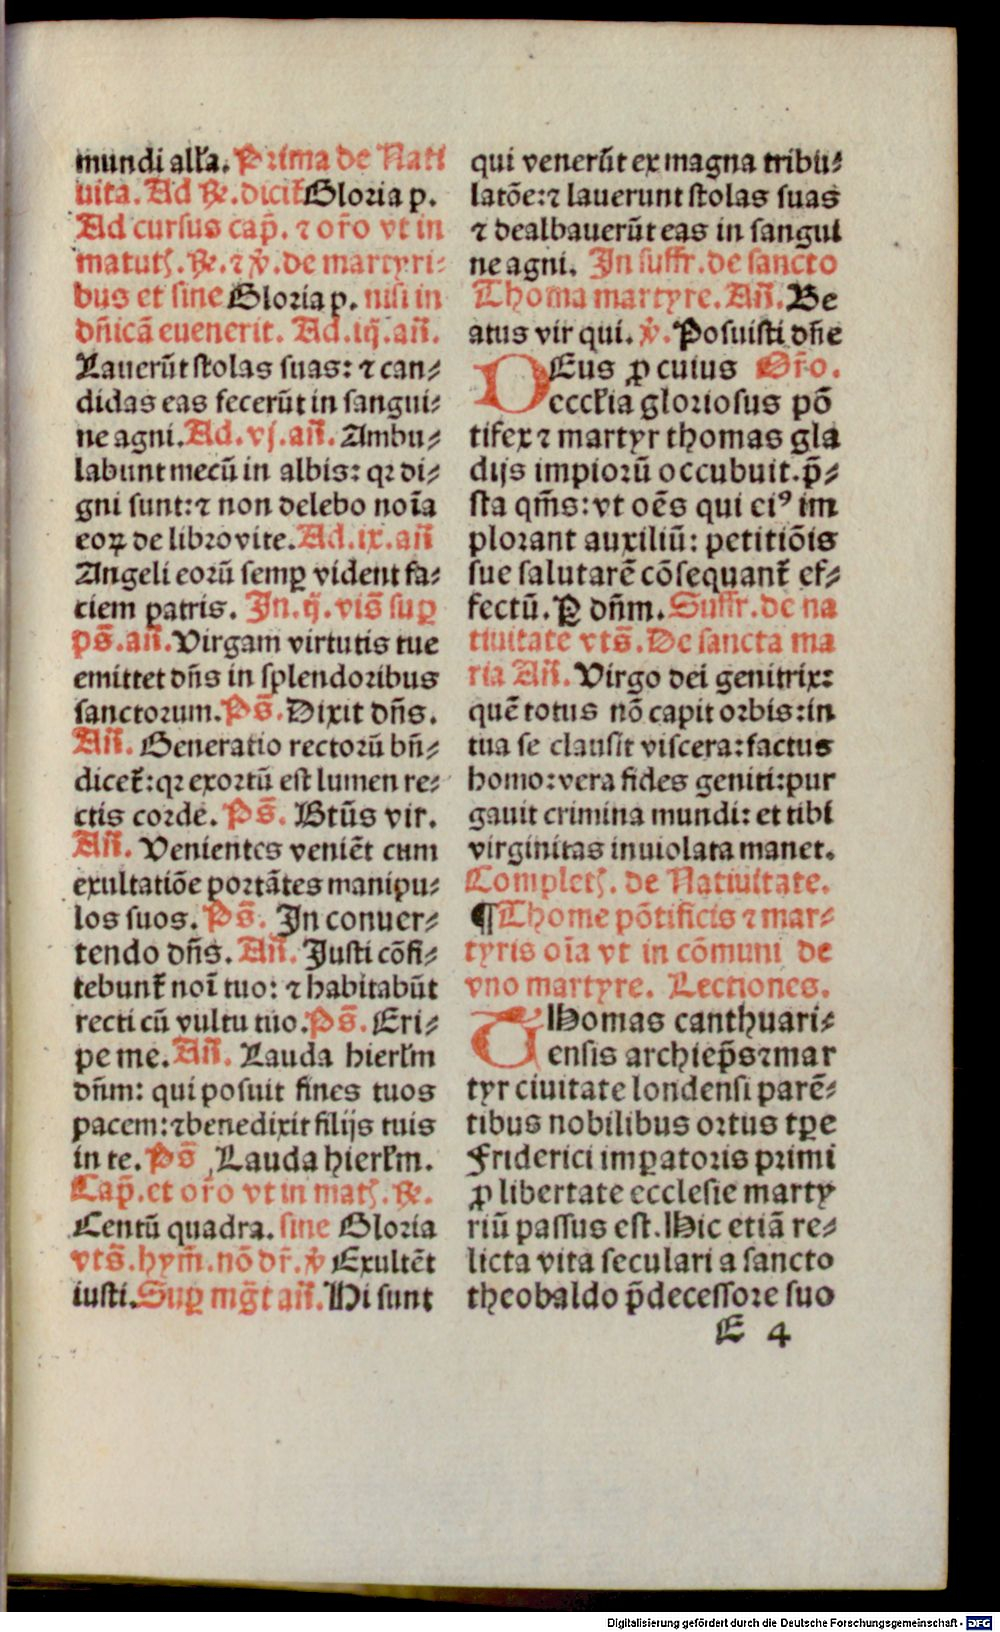 mundi alľa. Prima de Nati
uita. Ad ꝶ. dicit᷑ Gloria p.
Ad cursus cap̄. ⁊ or̄o vt in
matuti̅. ꝶ. ⁊ v̄. de martyri⸗
bus et sine Gloria p. nisi in
dn̄icā euenerit. Ad .iij. an̄.
Lauerūt stolas suas: ⁊ can⸗
didas eas fecerūt in sangui⸗
ne agni. Ad .vj. an̄. Ambu⸗
labunt mecū in albis: qꝛ di⸗
gni sunt: ⁊ non delebo noīa
eoꝝ de libro vite. Ad .ix. an̄
Angeli eorū semꝑ vident fa⸗
ciem patris. In .ij. vis̄ suꝑ
ps̄. an̄. Virgam virtutis tue
emittet dn̄s in splendoribus
sanctorum. Ps̄. Dixit dn̄s.
An̄. Generatio rectorū bn̄⸗
dicet᷑: qꝛ exortū est lumen re⸗
ctis corde. Ps̄. Btūs vir.
An̄. Venientes veniēt cum
exultatiōe portātes manipu⸗
los suos. Ps̄. In conuer⸗
tendo dn̄s. An̄. Justi cōfi⸗
tebunt᷑ noī tuo: ⁊ habitabūt
recti cū vultu tuo. Ps̄. Eri⸗
pe me. An̄. Lauda hierľm
dn̄m: qui posuit fines tuos
pacem: ⁊ benedixit filijs tuis
in te. Ps̄ Lauda hierľm.
Cap̄. et or̄o vt in mat̄. ꝶ.
Centū quadra. sine Gloria
vts̄. hym̄. nō dr̄. v̄ Exultēt
iusti. Suꝑ mg̅t an̄. Hi sunt
qui venerūt ex magna tribu⸗
latōe: ⁊ lauerunt stolas suas
⁊ dealbauerūt eas in sangui
ne agni. In suffr. de sancto
Thoma martyre. An̄. Be
atus vir qui. v̄. Posuisti dn̄e
DEus ꝓ cuius Or̄o.
eccľia gloriosus pō
tifex ⁊ martyr thomas gla
dijs impiorū occubuit. p̄⸗
sta qm̄s: vt oēs qui eiꝰ im
plorant auxiliū: petitiōis
sue salutarē cōsequant᷑ ef⸗
fectū. P dn̄m. Suffr. de na
tiuitate vts̄. De sancta ma
ria An̄. Virgo dei genitrix:
quē totus nō capit orbis: in
tua se clausit viscera: factus
homo: vera fides geniti: pur
gauit crimina mundi: et tibi
virginitas inuiolata manet.
Completi̅. de Natiuitate.
¶ Thome pōtificis ⁊ mar⸗
tyris oīa vt in cōmuni de
vno martyre. Lectiones.
THomas canthuari⸗
ensis archiep̄s ⁊ mar
tyr ciuitate londensi parē⸗
tibus nobilibus ortus tꝑe
Friderici imꝑatoris primi
ꝓ libertate ecclesie marty
riū passus est. Hic etiā re⸗
licta vita seculari a sancto
theobaldo p̄decessore suo
E 4
Digitalisierung gefördert durch die Deutsche Forschungsgemeinschaft - DFG